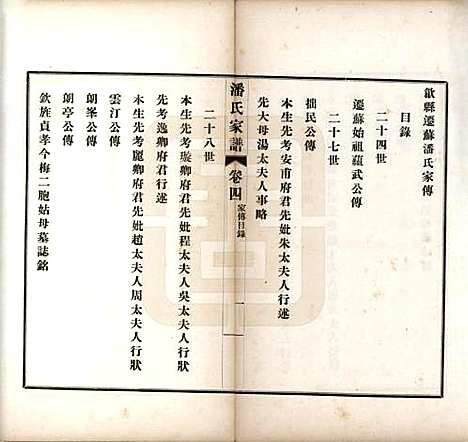 歙縣遷蘇潘氏家傳
目錄
二十四世
遷蘇始祖蘊武公傳
二十七世
拙民公傳
本生先考安甫府君先妣朱太夫人行述
先大母湯太夫人事略
潘氏家譜
卷四
家傳目錄
一
二十八世
本生先考璇卿府君先妣程太夫人吳太夫人行狀
先考逸卿府君行述
本生先考麗卿府君先妣趙太夫人周太夫人行狀
雲汀公傳
朗峯公傳
朗亭公傳
欽旌貞孝今梅二胞姑母墓誌銘